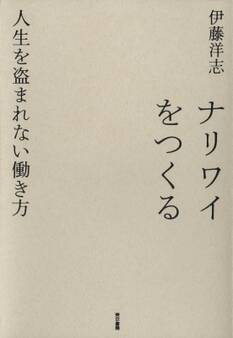 伊藤洋志
ナリワイ
をつくる
人生を盗まれない働き方
東京書籍